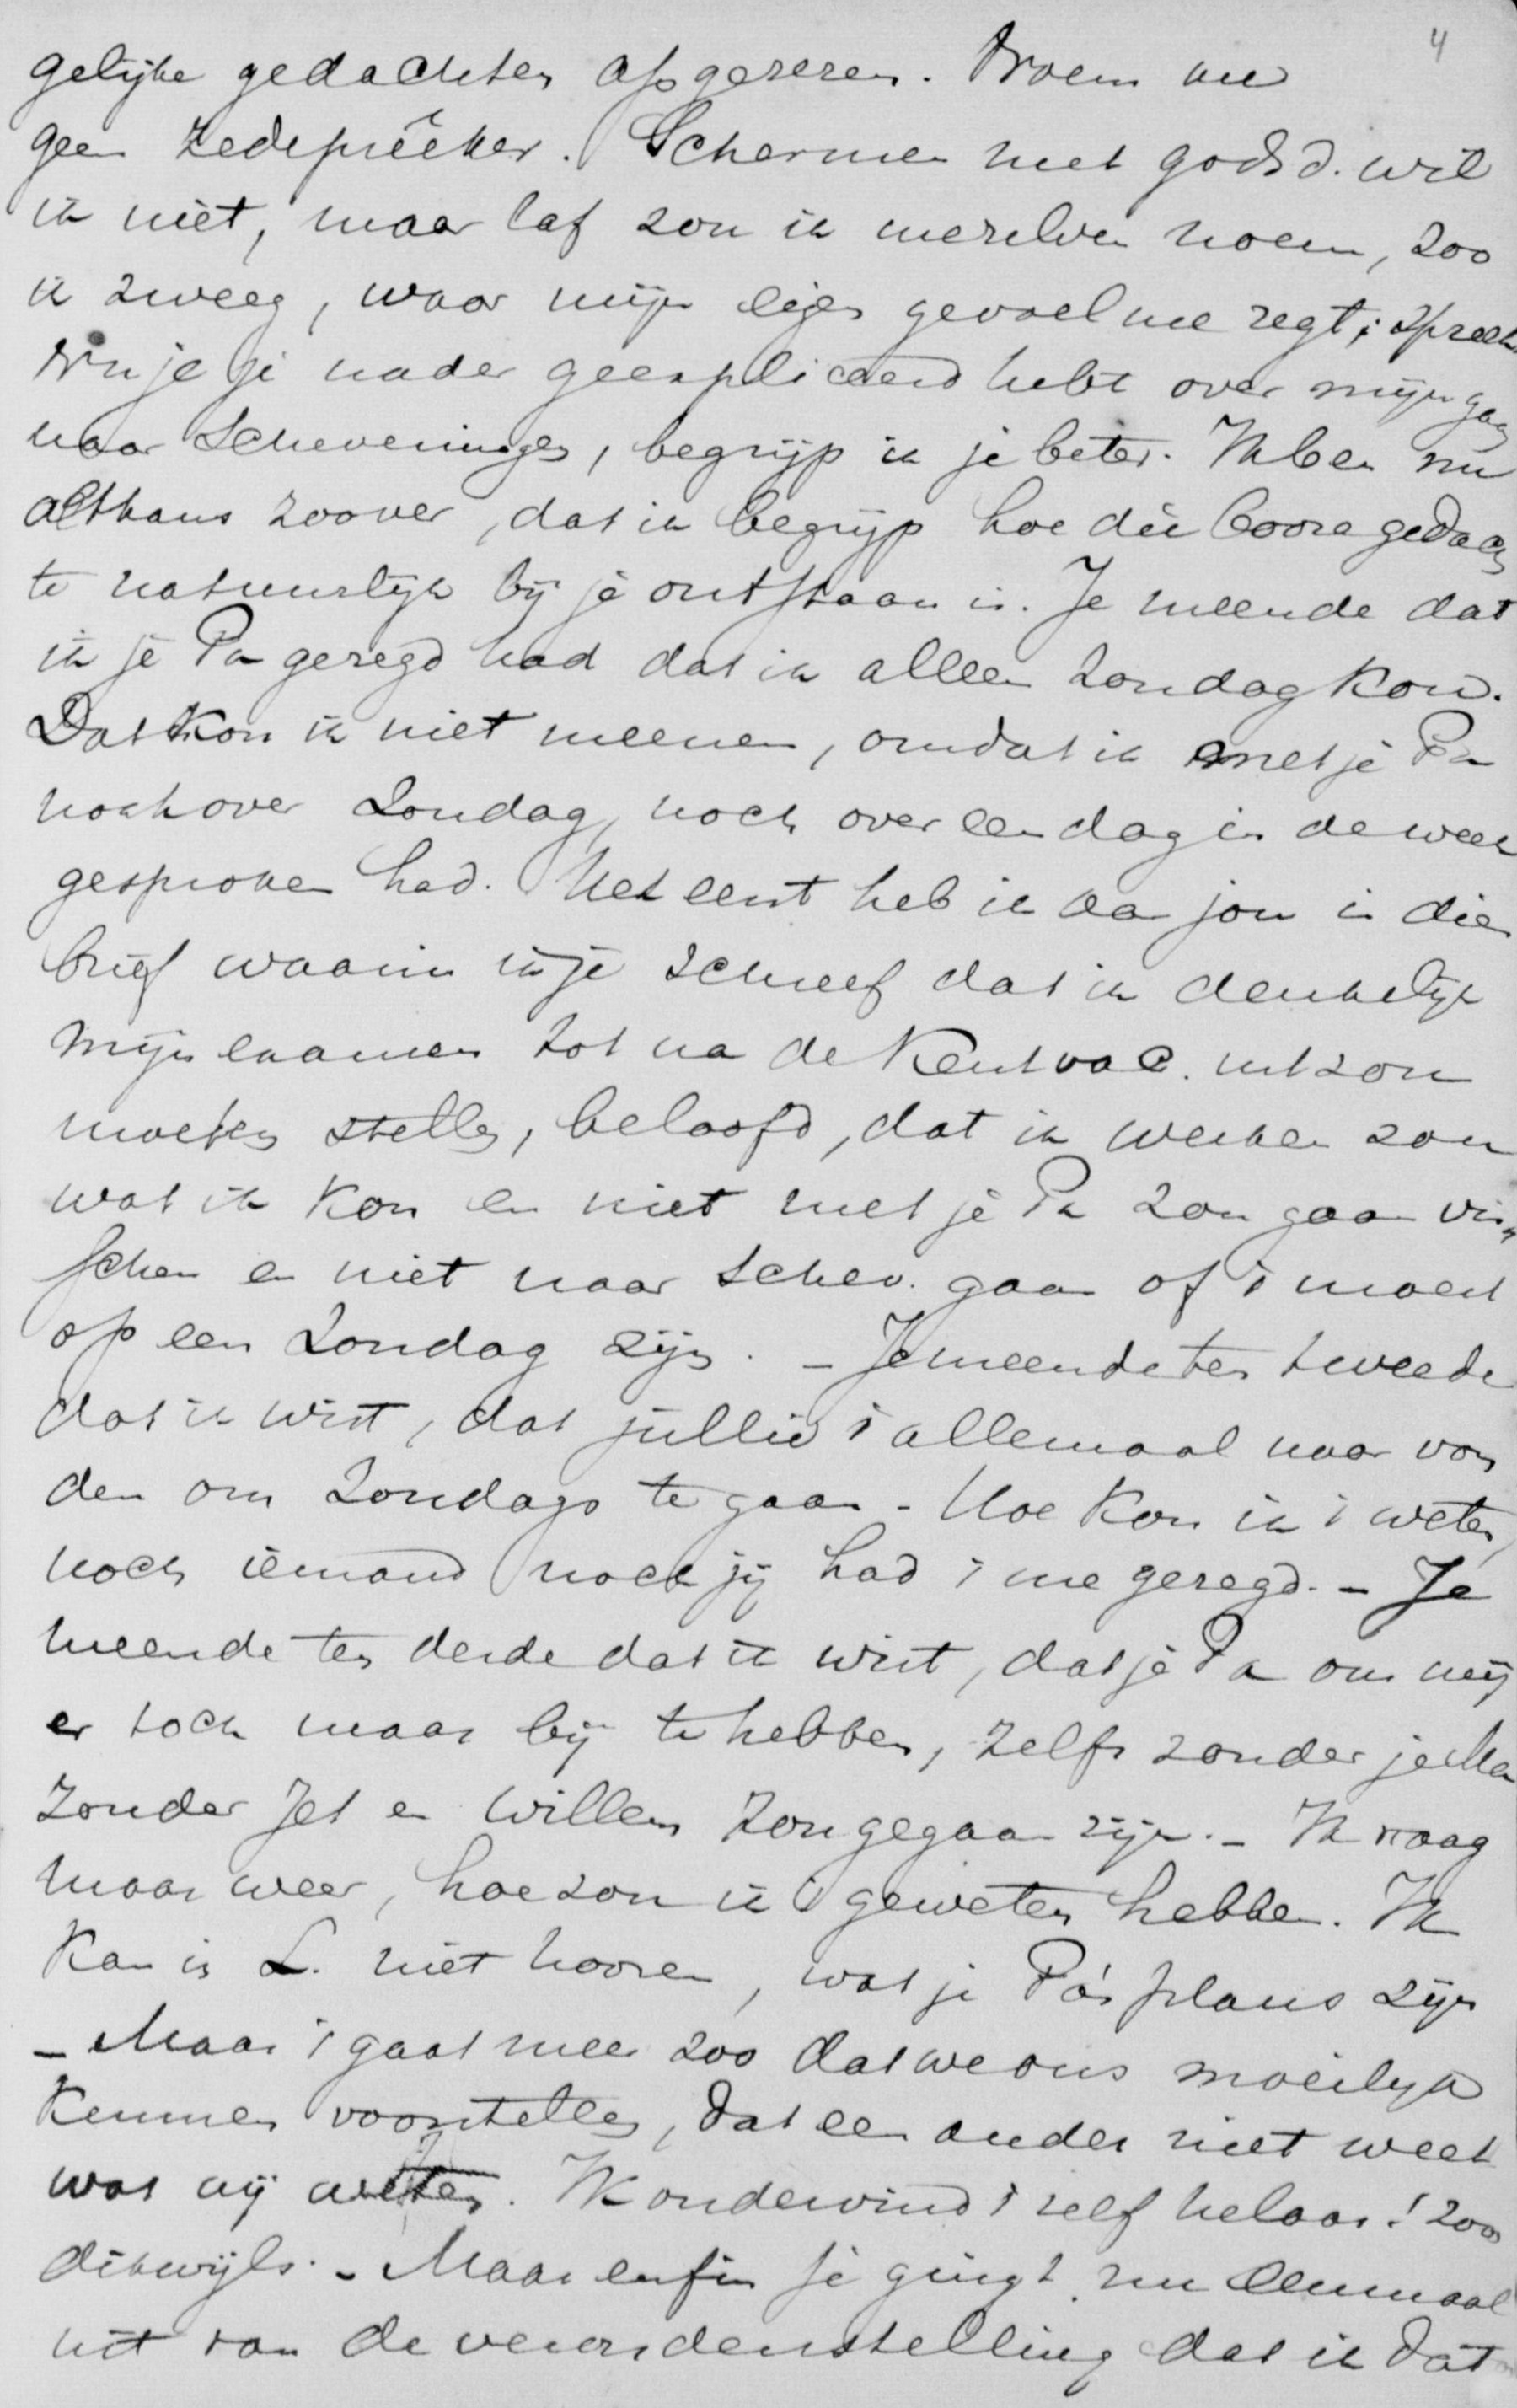 4
gelijke gedachten afgezezen. Noem me
geen zedeprêeker. Schermen met godsd. wil
ik niet, maar laf zou ik mezelven noem, zoo
ik zweeg, waar mijn eigen gevoel me zegt; spreek
Nu je je nader geexpliceerd hebt over mijn gaan
naar Scheveningen, begrijp ik je beter. Ik ben nu
althans zoover, dat ik begrijp hoe die booze gedach
te natuurlijk bij je ontstaan is. Je meende dat
ik je Pa gezegd had dat ik alleen Zondag kon.
Dat kon ik niet meenen, omdat ik met je Pa
noch over Zondag, noch over een dag in de week
gesproken had. Het eerst heb ik aan jou in dien
brief waarin ik je schreef dat ik denkelijk
mijn examen tot na de Kerstvac. uit zou
moeten stellen, beloofd, dat ik werken zou
wat ik kon en niet met je Pa zou gaan vis„
schen en niet naar Schev. gaan of 't moest
op een Zondag zijn. - Je meende ten tweede
dat ik wist, dat jullie 't allemaal naar von
den om Zondags te gaan - Hoe kon ik 't weten,
noch iemand noch jij had 't me gezegd. - Je
meende ten derde dat ik wist, dat je Pa om mij
er toch maar bij te hebben, zelfs zonder je Ma
zonder Jet en Willem zou gegaan zijn. - Ik vraag
maar weer, hoe zou ik 't geweten hebben. Ik
kan in L. niet hooren, wat je Pa's plans zijn
- Maar 't gaat meer zoo dat we ons moeilijk
kunnen voorstellen, dat een ander niet weet
wat wij weten. Ik ondervind 't zelf helaas! zoo
dikwijls. - Maar enfin je gingt nu eenmaal
uit van de veronderstelling dat ik dat